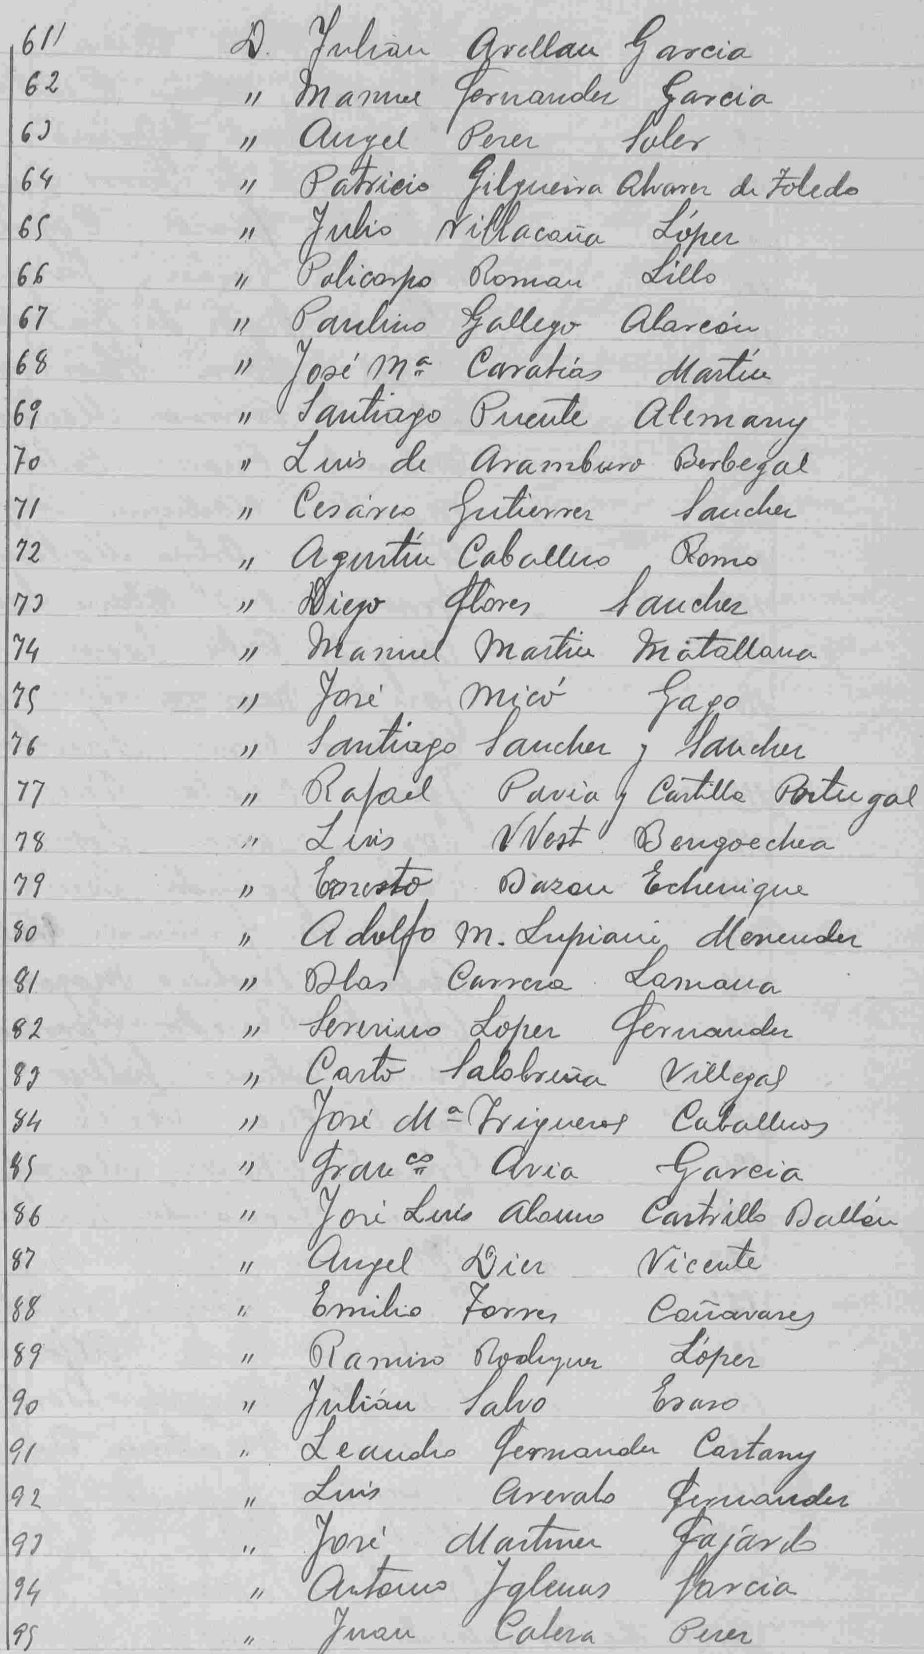 611 D. Julián Arellan Garcia
62 " Manuel Fernander Garcia
63 " Angel Perez Soler
64 " Patricio Gilgueira Alvarez de Toledo
65 " Julio Villacaña López
66 " Policarpo Roman Lillo
67 " Paulino Gallego Alarcón
68 " José Mª Carabias Martín
69 " Santiago Puente Alemany
70 " Luis de Aramburo Berbegal
71 " Cesáreo Gutierrez Sanchez
72 " Agustín Caballero Romo
73 " Diego Flores Sanchez
74 " Manuel Martin Matallana
75 " José Micó Gago
76 " Santiago Sanchez y Sanchez
77 " Rafael Pavia y Castilla Portugal
78 " Luis West Bengoechea
79 " Ernesto Bazan Echenique
80 " Adolfo M. Lupiani Menendez
81 " Blas Carrera Lamana
82 " Severino Lopez Fernandez
83 " Casto Salobreña Villegas
84 " José Mª Trigueros Caballeros
85 " Franco Avia Garcia
86 " José Luis Alonso Castrillo Ballón
87 " Angel Diez Vicente
88 " Emilio Torres Cañavares
89 " Ramiro Rodriguez López
90 " Julián Salvo Eraso
91 " Leandro Fernandez Castany
92 " Luis Arevalo Fernandez
93 " José Martinez Fajardo
94 " Antonio Iglesias Garcia
95 " Juan Calera Perez